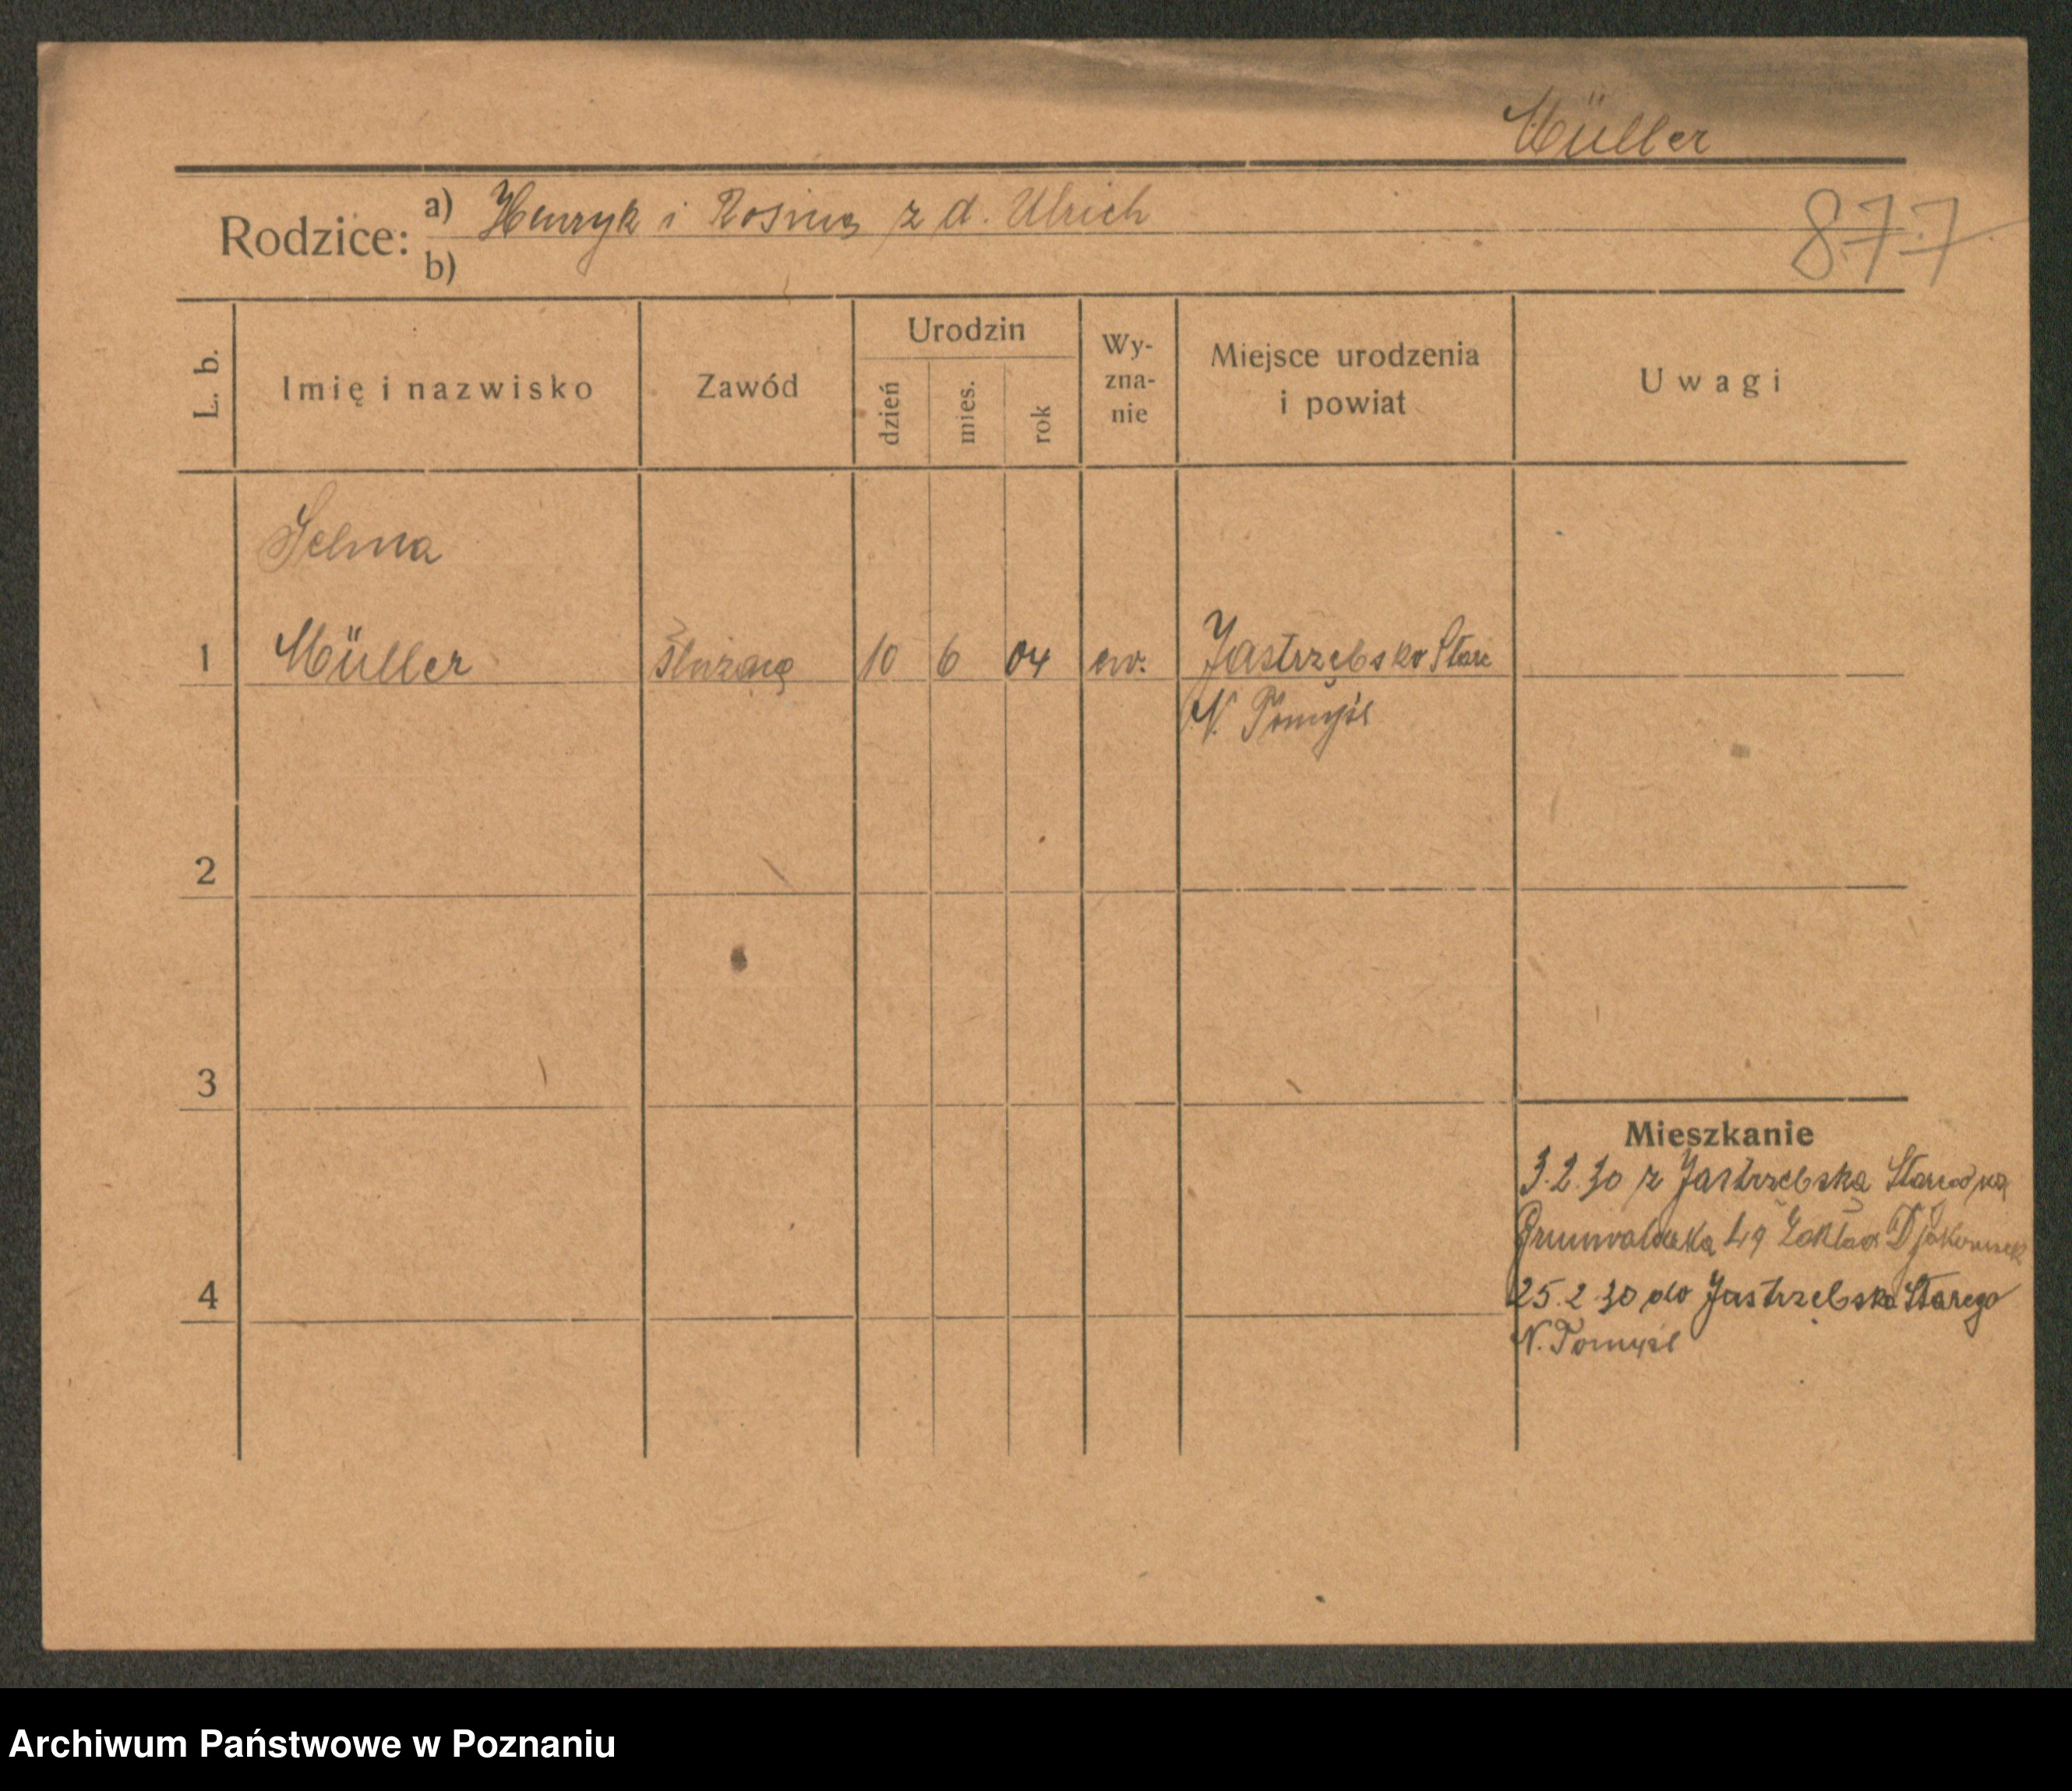 Müller
Rodzice: a) Henryk i Rosina z d. Ulrich
877
b)
L. b.
Imię i nazwisko
Zawód
Urodzin
dzień
mies.
rok
Wy-
zna-
nie
Miejsce urodzenia
i powiat
Uwagi
Selma
1 Müller służąca 10 6 04 ew. Jastrzębsko Stare
N. Tomyśl
2
3
Mieszkanie
3.2.30 z Jastrzębska Starego na
Grunwaldzka 49 Zakład Djakonisek
4
25.2.30 do Jastrzębska Starego
N. Tomyśl
Archiwum Państwowe w Poznaniu